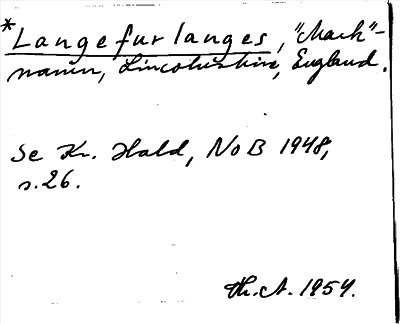 *Langefurlanges, "Mark"-
navn, Lincolnshire, England.
Se Kr. Hald, NoB 1948,
s.26.
Th.A. 1954.